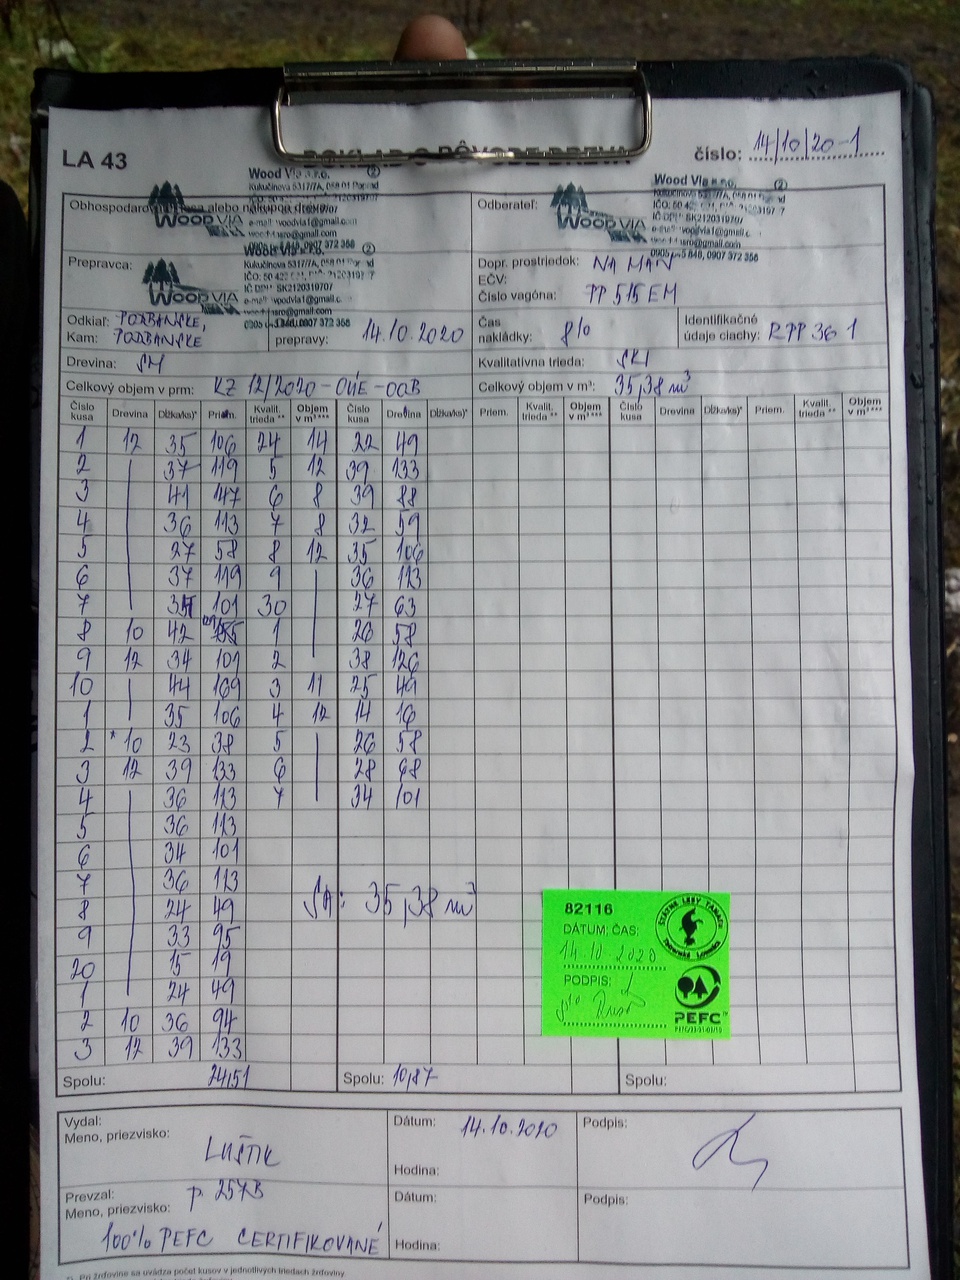 LA 43
DOKLAD O PÔVODE DREVA
číslo: 14/10/20-1
Wood Via s.r.o. (2)
Kukučínova 5317/7A, 058 01 Poprad
e-mail: woodvia1@gmail.com
0907 372 368
WOODVIA
Odberateľ:
Wood Via s.r.o. (2)
Kukučínova 5317/7A, 058 01 Poprad
IČ DPH: SK2120319707
e-mail: woodvia1@gmail.com
0907 372 368
WOODVIA
Prepravca:
Wood Via s.r.o. (2)
Kukučínova 5317/7A, 058 01 Poprad
IČ DPH: SK2120319707
e-mail: woodvia1@gmail.com
0907 372 368
WOODVIA
Dopr. prostriedok: NA MAN
EČV:
Číslo vagóna: PP 515 EM
Odkiaľ: PODBANSKE,
Kam: PODBANSKE
prepravy: 14.10.2020
Čas nakládky: 8/0
Identifikačné údaje ciachy: RPP 36 1
Drevina: SM
Kvalitatívna trieda:
Celkový objem v prm: KZ 12/2020-OÚE-OOB
Celkový objem v m³: 35,38 m³
Číslo kusa Drevina Dĺžka(ks)* Priem. Kvalit. trieda** Objem v m³*** Číslo kusa Drevina Dĺžka(ks)* Priem. Kvalit. trieda** Objem v m³*** Číslo kusa Drevina Dĺžka(ks)* Priem. Kvalit. trieda** Objem v m³***
1 12 35 106 24 14 22 49
2 37 119 5 12 39 133
3 41 147 6 8 39 88
4 36 113 7 8 32 59
5 27 58 8 12 35 106
6 37 119 9 36 113
7 101 30 27 63
8 10 42 1 26 58
9 12 34 101 2 38 126
10 44 169 3 11 25 49
1 35 106 4 12 14 16
2 10 23 38 5 26 58
3 12 39 133 6 28 68
4 36 113 7 34 101
5 36 113
6 34 101
7 36 113
8 24 49
9 33 95
20 15 19
1 24 49
2 10 36 94
3 12 39 133
35,38 m³
82116
DÁTUM; ČAS:
14.10 2020
PODPIS:
ŠTÁTNE LESY TANAPu
Tatranská Lomnica
PEFC
Spolu: 24,51
Spolu: 10,87
Spolu:
Vydal:
Meno, priezvisko: LUŠTIK
Dátum: 14.10.2020
Hodina:
Podpis:
Prevzal:
Meno, priezvisko: p. 257B
100% PEFC CERTIFIKOVANÉ
Dátum:
Hodina:
Podpis:
*) Pri žrďovine sa uvádza počet kusov v jednotlivých triedach žrďoviny